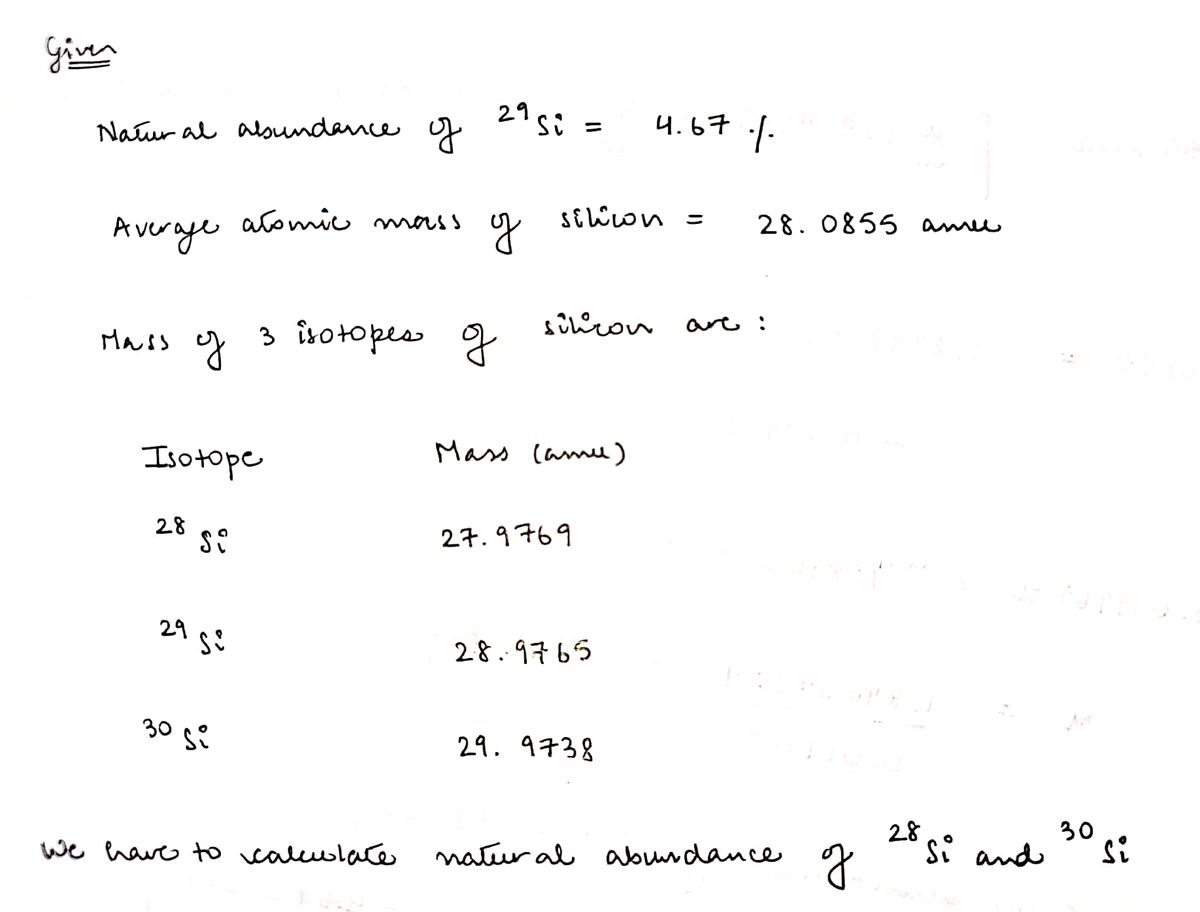 Given
Natural abundance of ²⁹Si = 4.67 %.
Average atomic mass of silicon = 28.0855 amu
Mass of 3 isotopes of silicon are :
Isotope Mass (amu)
²⁸Si 27.9769
²⁹Si 28.9765
³⁰Si 29.9738
We have to calculate natural abundance of ²⁸Si and ³⁰Si